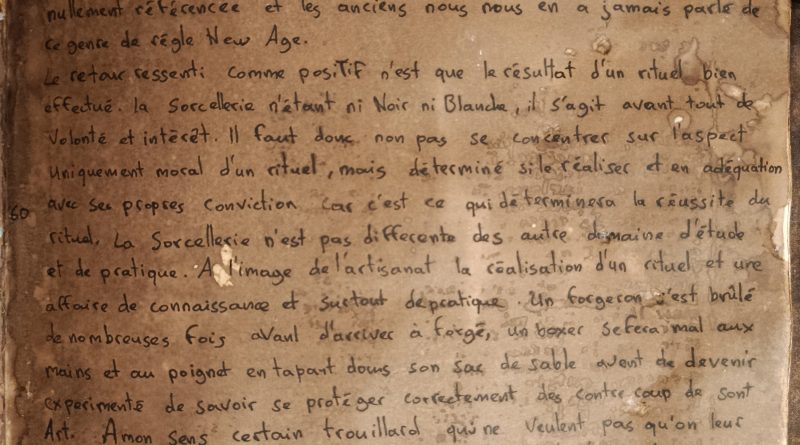 nullement référencée et les anciens nous nous en a jamais parlé de
ce genre de règle New Age.
Le retour ressenti comme positif n'est que le résultat d'un rituel bien
effectué. la Sorcellerie n'étant ni Noir ni Blanche, il s'agit avant tout de
Volonté et intérêt. Il faut donc non pas se concentrer sur l'aspect
Uniquement moral d'un rituel, mais déterminé si le réaliser et en adéquation
50 avec ses propres conviction car c'est ce qui déterminera la réussite du
rituel. La Sorcellerie n'est pas differente des autre domaine d'étude
et de pratique. A l'image de l'artisanat la réalisation d'un rituel et une
affaire de connaissance et surtout de pratique. Un forgeron s'est brûlé
de nombreuses fois avant d'arriver à forgé, un boxer se fera mal aux
mains et au poignet en tapant dans son sac de sable avent de devenir
experimenté de savoir se protéger correctement des contre coup de sont
Art. A mon sens certain trouillard qui ne veulent pas qu'on leur